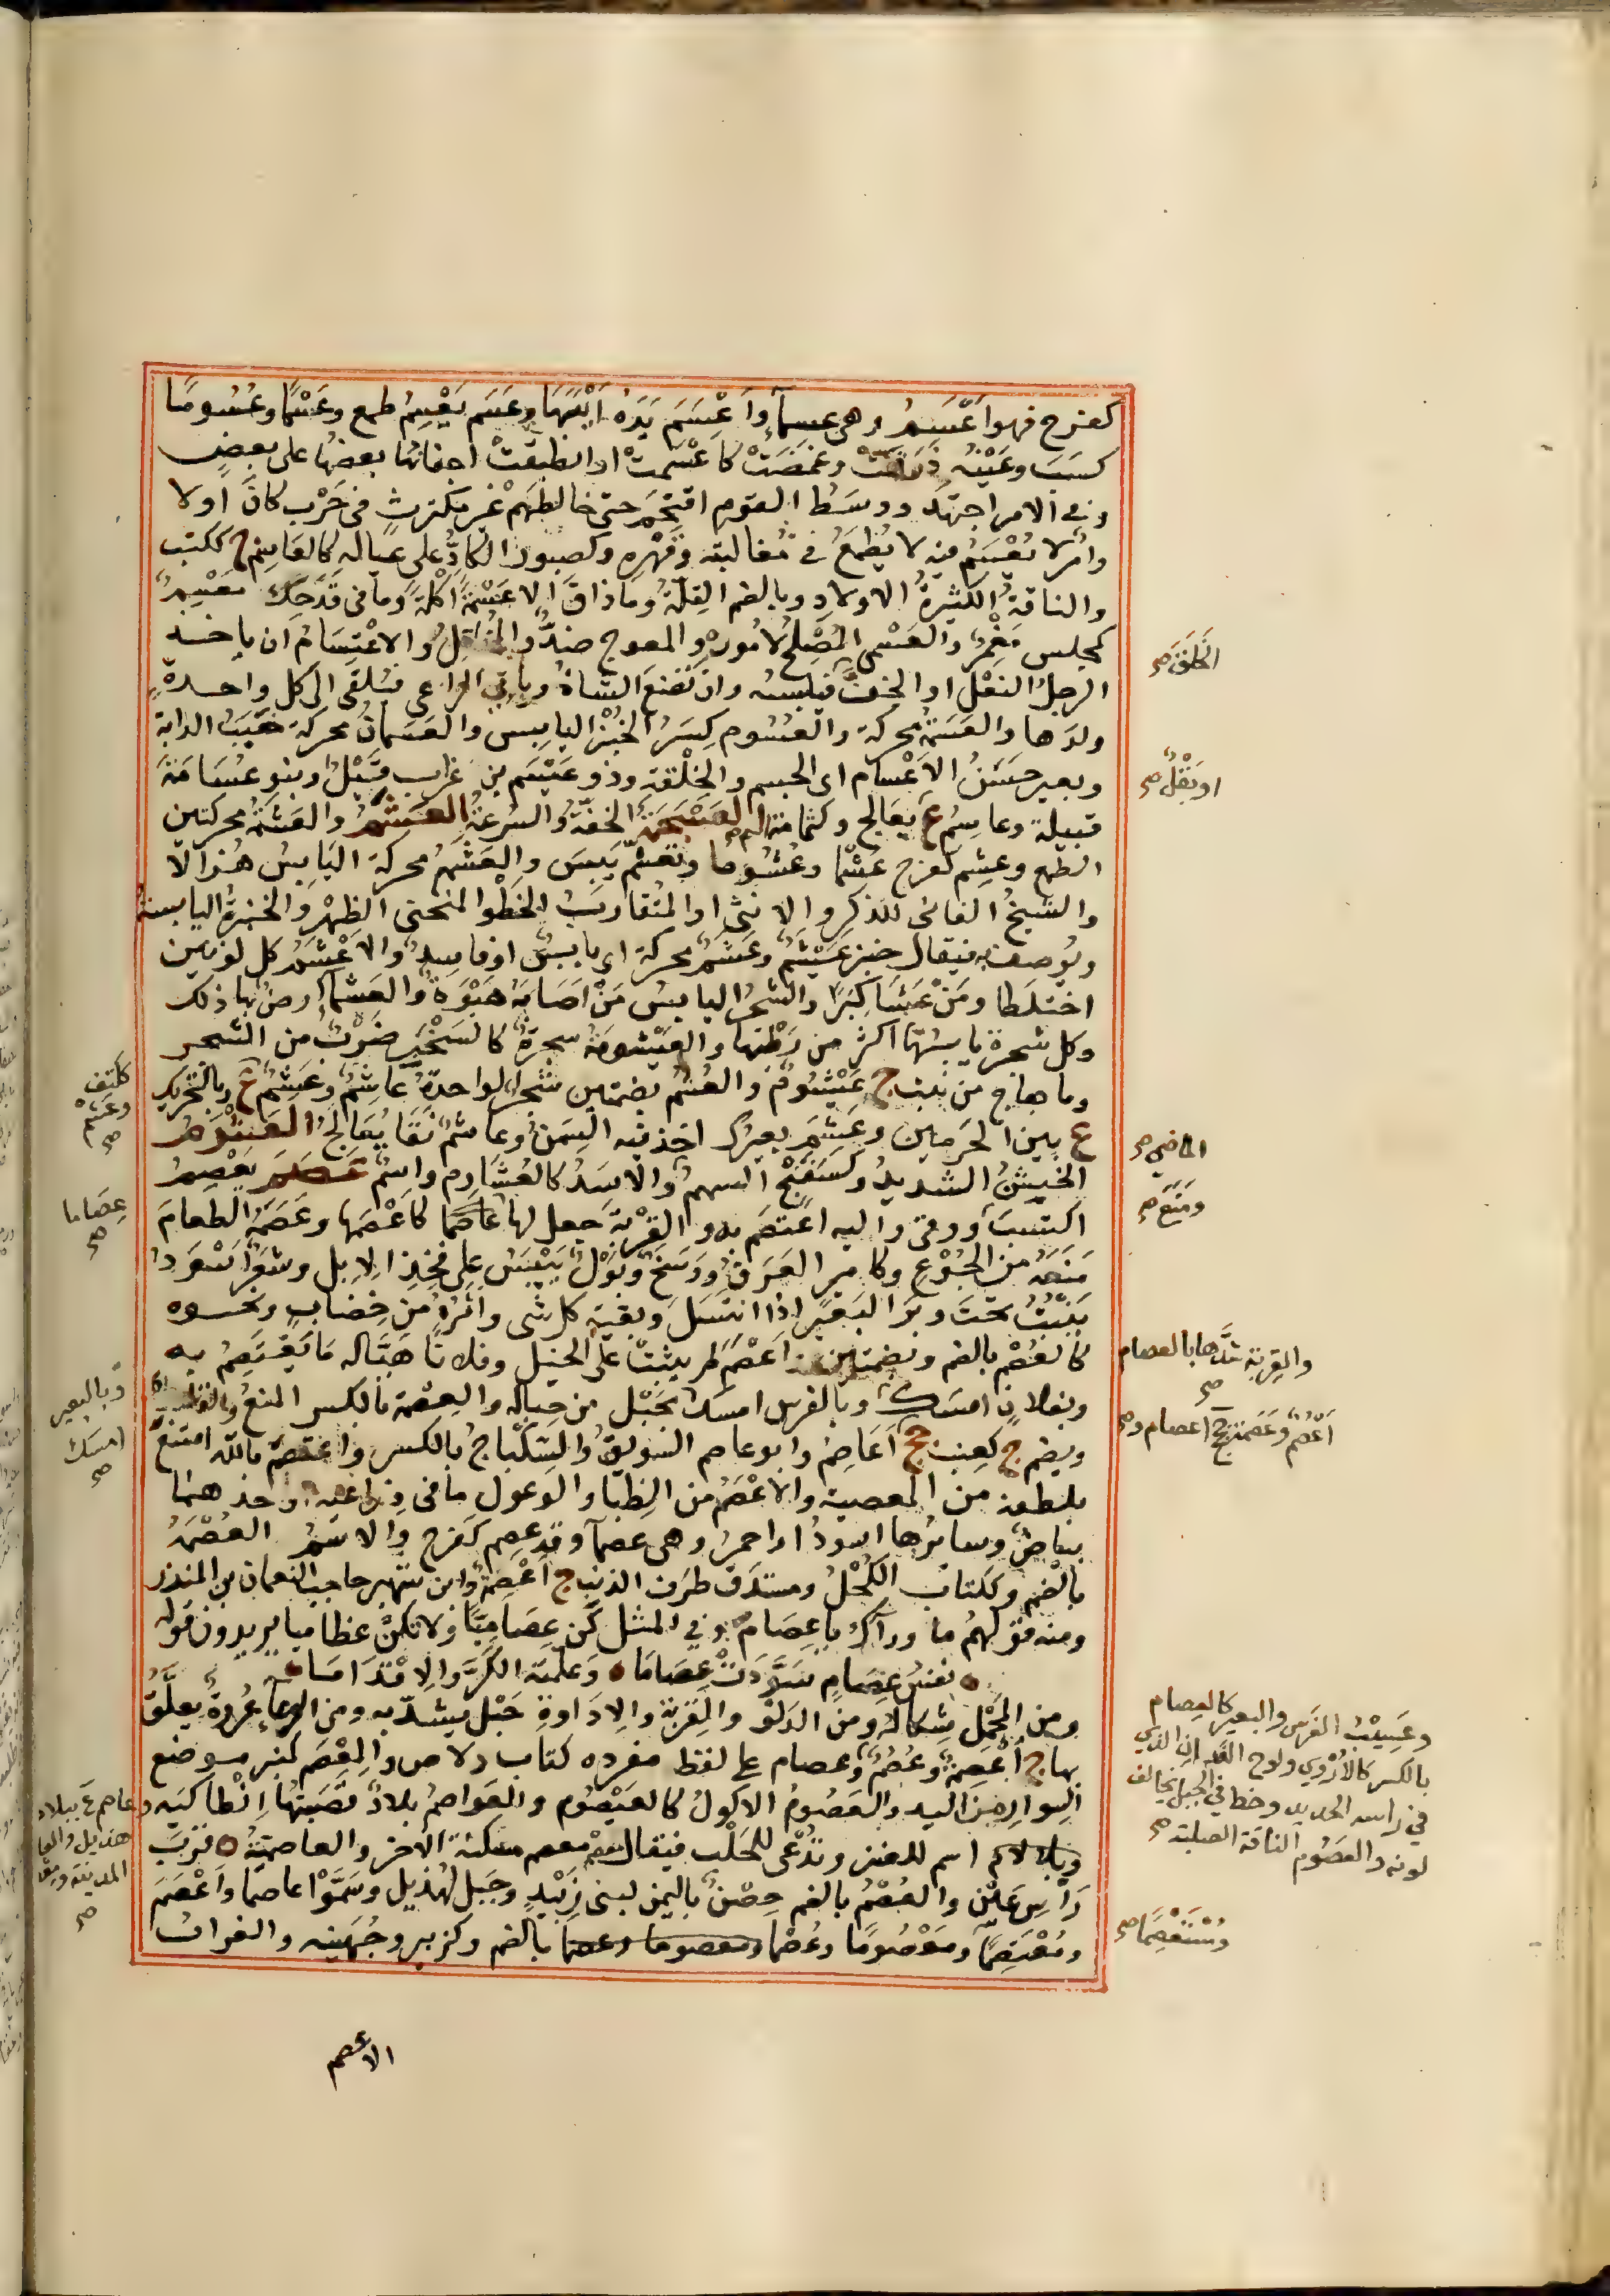 كفرح فهو أَعْسَمُ وهى عسماء وأَعْسَمَ يَدَهُ أَيْبَسَهَا وعَسَمَ يَعْسِمُ طمع وعَسْمًا وعُسُومًا
كسَبَ وعَيْنُه ذَرَفَتْ وغمضَتْ كأعْسَمتْ او انطبقتْ اجفانُها بعضُها على بعضٍ
وفى الامر اجتهد ووسَطَ القومِ اقتحَمَ حتى خالطَهُمْ غير مكترثٍ فى حَرْبٍ كانَ اولا
وأمْرٌ لا يُعْسَمُ فيه لا يُطْمَعُ فى مُغالبتِه وقَهْرِه وكصبور الكادُّ على عياله كالعاسِم ج ككتب
والناقةُ الكثيرةُ الاولادِ وبالضم القِلَّةُ وما ذاقَ الا عَسْمَةً أكْلَةً وما فى قَدَحِكَ مَعْسِمٌ
كمجلس مَغْمَزٌ والعَسْمِى المُصْلِحُ لأمُوره والمعوج ضدٌّ والمُخاتِلُ والاعْتِسَامُ ان ياخذ
الرجلُ النعْلَ او الخفَّ فيلبسه وان تَضَعَ الشاةُ ويأتى الراعى فيُلقى الى كل واحدةٍ
ولدَها والعَسَمَةُ محركة والعُسُوم كِسَرُ الخُبْزِ اليابِس والعَسَمانُ محركة خَبَبُ الدابة
وبعير حَسَنُ الاعْسام اى الجسم والخِلْقةِ وذو عَيْسَم بن غراب قَيْلٌ وبنو عُسَامَةَ
قبيلة وعاسِمُ ع بعالج وكثمامة اسم العَسْجَمَةُ الخفّةُ والسُرعةُ العَشَمُ والعَشَمَةُ محركتين
الطمع وعَشِم كفرح عَشَمًا وعُشُومًا وتعَشَّمَ يَبِسَ والعَشَمَةُ محركة اليَابِسُ هُزالًا
والشَيخُ الفانى للذكر والانثى او المُتقارِبُ الخَطْوِ المنحنى الظهْر والخُبزةُ اليابسة
ويُوصف به فيقال خبز عَيْشَمٌ وعَشَمٌ محركة اى يابِسٌ او فاسِدٌ والاعْشَمُ كل لونين
اختلَطا ومَنْ عَسَا كِبَرًا والشجَرُ اليابِسُ مَنْ اَصَابَهُ هَبْوَةٌ والعشماءُ ارضٌ بها ذلك
وكل شجرة يابِسُها اكثر من رَطْبِها والعَيْشومَةُ شجرةٌ كالسَخْبَرِ ضَرْبٌ من الشجر
وما هاج من نبت ج عَيْشُومٌ والعُشُمُ بضمتين شجَرٌ لواحدةُ عاشِمٌ وعَشِمٌ ع وبالتحريك
ع بين الحَرَمين وعَشِمَ بعيرُكَ اخذ فيه السِمَنُ وعاشمٌ نَقًا بعَالِجٍ العَشْرَمُ
الخَشِنُ الشديدُ وكسَفَنَّجٍ السهمُ والاسَدُ كالعُشَارِم واسمٌ عَصَمَ يَعْصِمُ
اكتسَبَ ووقى واليه اعْتصَم به والقِرْبةَ جعل لها عِصَامًا كأعْصَمَها وعَصَمَهُ الطعامُ
مَنَعَه من الجُوعِ وكأميرٍ العَرَقُ ووَسَخٌ وبَوْلٌ يَيْبَسُ على فَخِذِ الابل وشَعَرٌ اَسْوَدُ
يَنْبُتُ تحتَ وبَرِ البَعير اذا انتَسَلَ وبقية كل شىء واثَرُه من خِضابٍ ونحوه
كالعُصْمِ بالضم وبضمتين وأعْصَمَ لم يثبتْ على الخَيْل وفلانًا هَيَّأ له ما يَعْتَصِمُ به
وبفلانٍ امسَكَ وبالفرس امسك بحَبْلٍ من حباله والعِصْمة بالكسر المنعُ والقلادة
ويضم ج كعِنب جج اَعْصُمٌ وابو عاصم السَوِيقُ والسَّكْباجُ بالكسر واعتصَمَ بالله امتنَعَ
بلطفه من المعصية والاعْصَمُ من الظِبَا والوَعولِ مافى ذِراعَيْه او احدهما
بياضٌ وسائرُها اسودُ او احمرُ وهى عَصْماء وقد عصِم كفرح والاسْمُ العُصْمَةُ
بالضم وككتاب الكُحْلُ ومُسْتَدَقُّ طَرَفِ الذنَب ج أعْصِمَةٌ وابن شهبر حاجبُ النعمان بن المنذر
ومنه قولُهُم ما وراءَك ياعِصَامُ وفى المثل كُنْ عِصَامِيًّا ولا تكُنْ عظاميا يريدون قوله
نفسُ عِصَامٍ سَوَّدَتْ عِصَامَا وعَلَّمَتْهُ الكَرَّ والاِقْدَامَا
ومن المَحْمِلِ شِكالُه ومن الدَلْوِ والقِرْبةِ والاِدَاوةِ حَبْل يشدّ به ومن الوِعَاءِ عُروةٌ يعلَّقُ
بها ج أعْصِمَةٌ وعُصُمٌ وعِصام على لفظ مفرده كتاب دلاص والمِعْصَم كمنبر موضع
السِوارِ من اليد والعَصُومُ الاَكُولُ كالعَيْصُوم والعَواصمُ بلادٌ قصَبتُها اِنْطاكيَه
وبلا لام اسم للعنز وتُدْعى للحَلْب فيقال مِعصَم معصم مسكنة الاخر والعاصِمِيَّةُ قُرْبَ
رَأسِ عَيْنٍ والعُصْمُ بالضم حِصْنٌ باليمن لبنى زُبَيْدٍ وجَبل لهُذيل وسَمَّوْا عاصما وأعْصَمَ
ومُعْتَصِمًا ومَعْصُومًا وعُصْمًا ومعصوما وعصما بالضم وكزبير وجُهَيْنة والغراب
الخَلَقَ صح
او بَقْلٌ صح
الماضى صح
ومَنَعَ صح
والقِربة شدَّها بالعصام صح
أعْصُمٌ وعَصَمة جج اعصام صح
وعَسِيبُ الفَرس والبعير كالعصام
بالكسر
فى راسه الحديد وخط فى الجبل يخالف
لونه والعَصُوم الناقة الصلبة صح
ومُسْتَعْصِمًا صح
كتف
وعَشَمٌ
صح
عِصَاما
صح
وبالبعير
امسك
صح
وعاصم ع ببلاد
هذيل
المدينة
صح
الاعصم